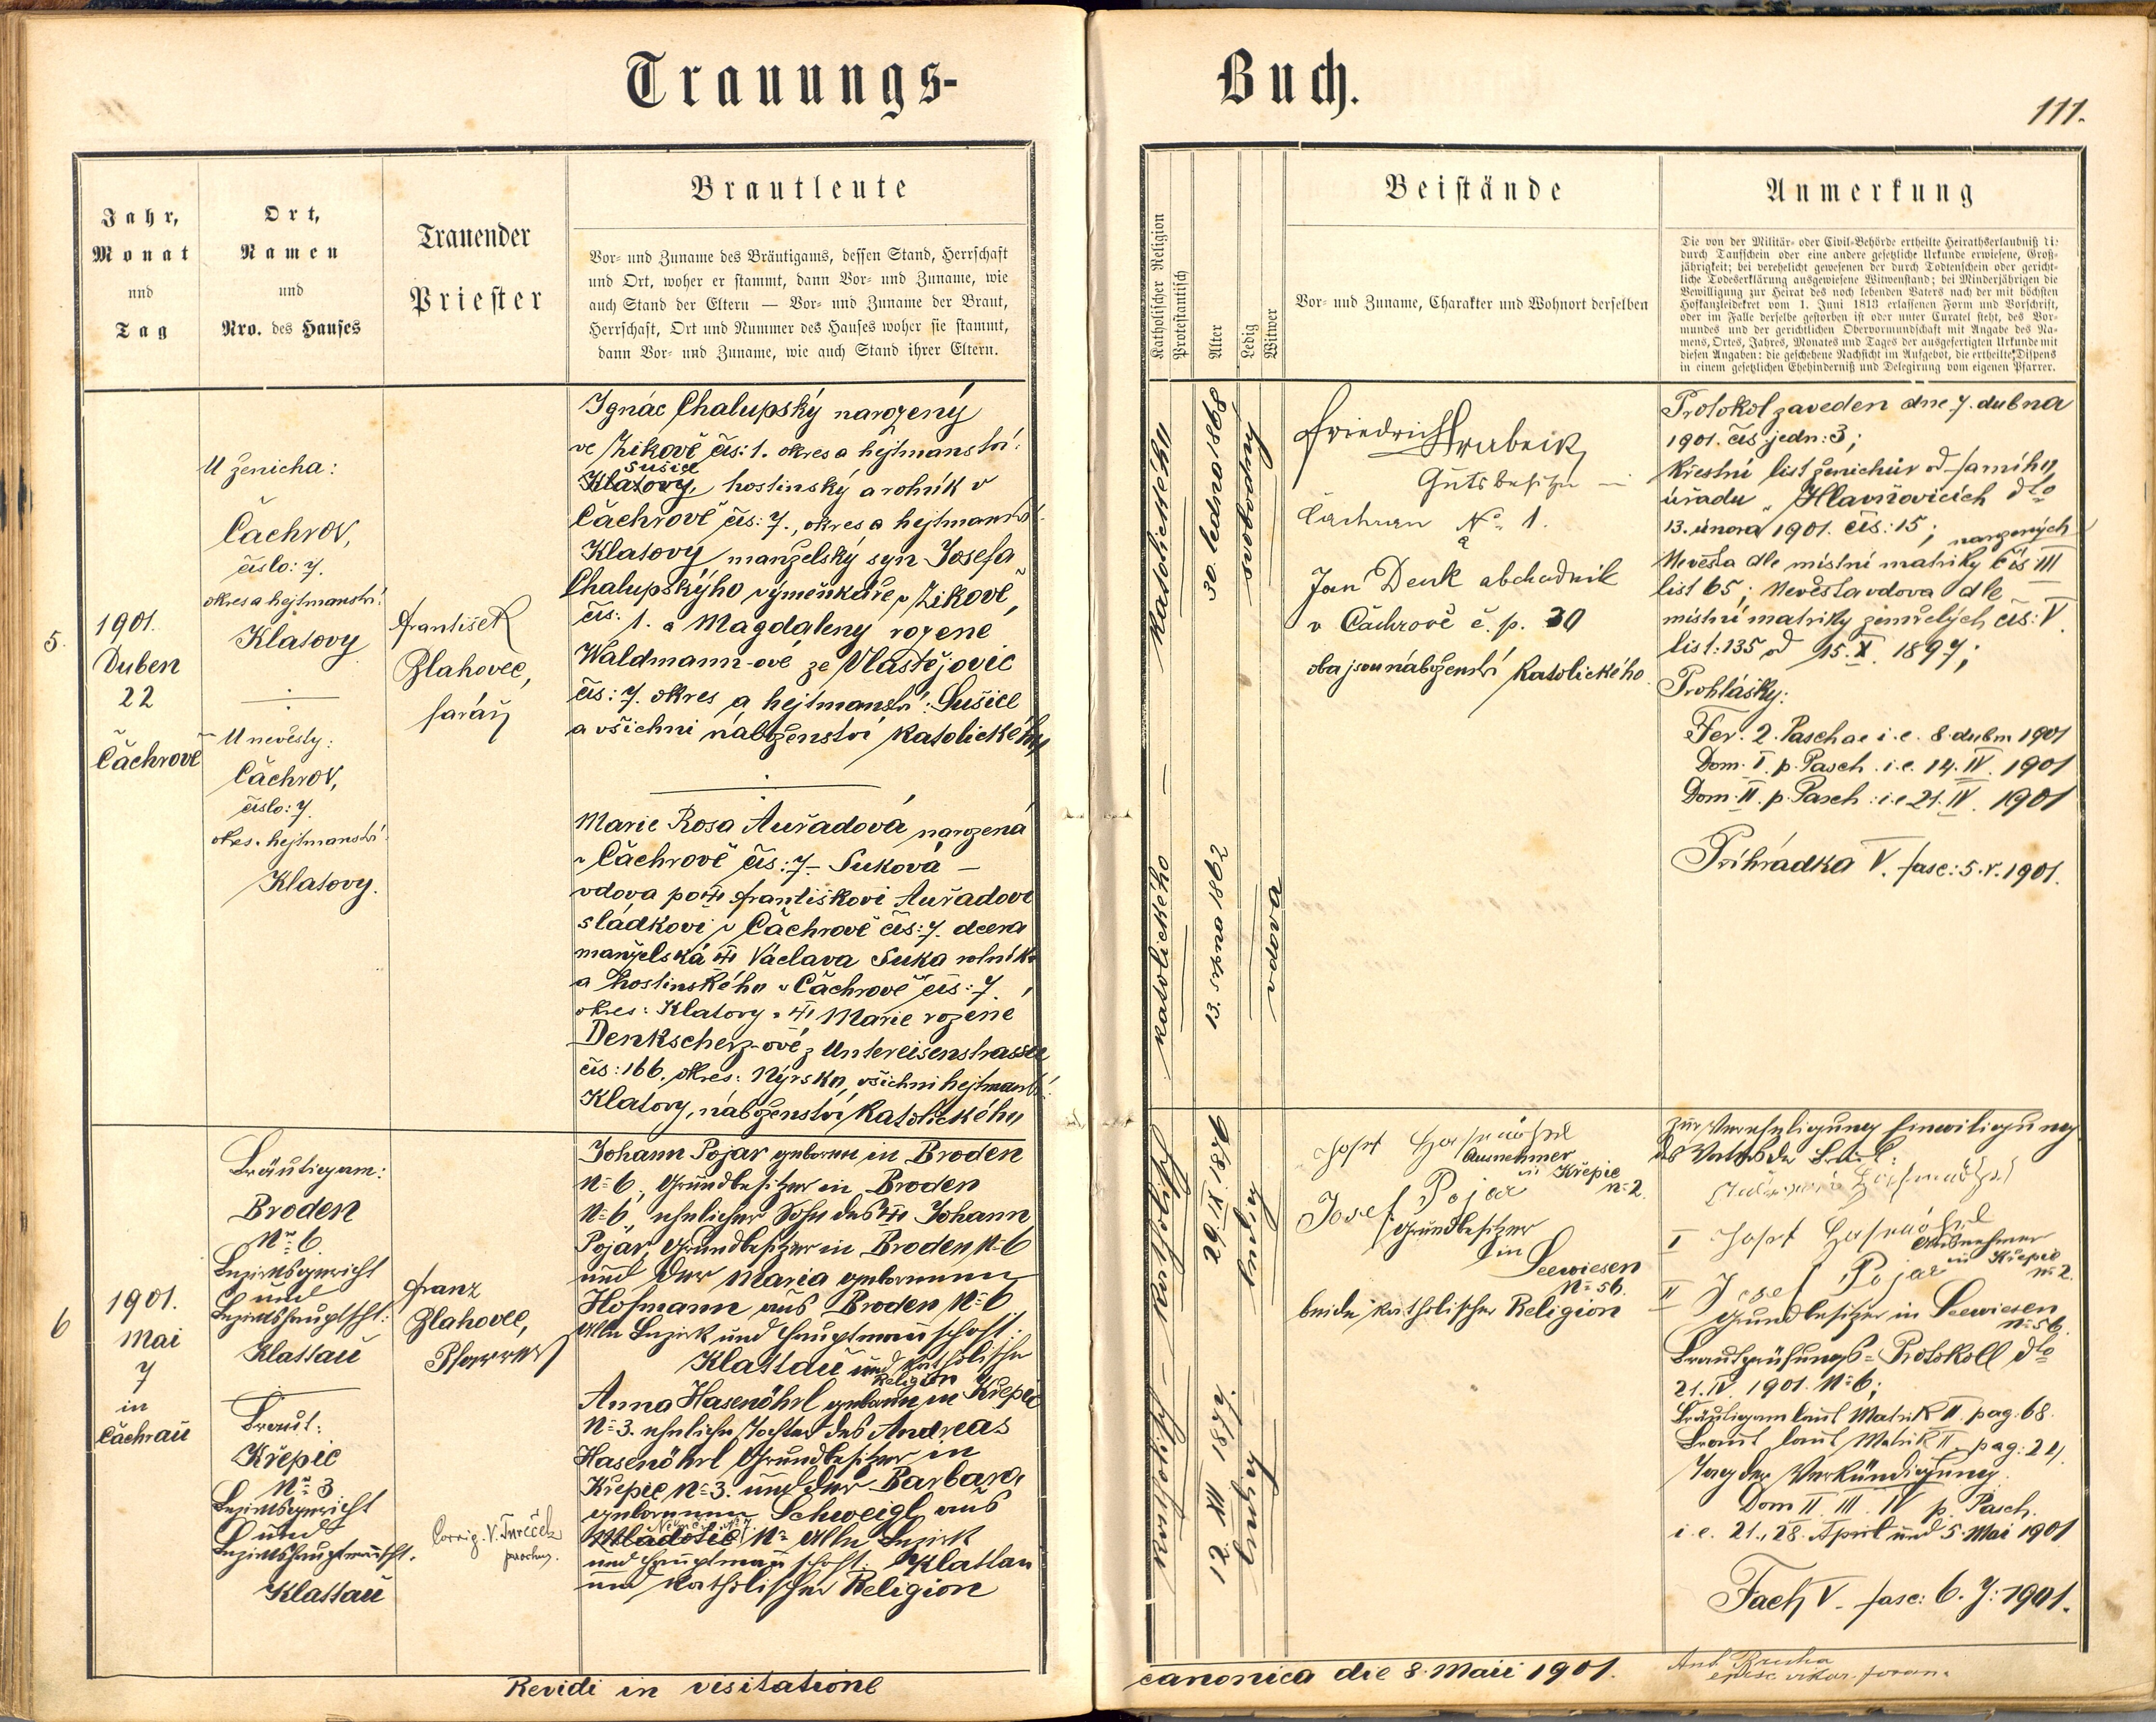 Trauungs-
Buch.
111.
Jahr,
Monat
und
Tag
Ort,
Namen
und
Nro. des Hauses
Trauender
Priester
Brautleute
Vor- und Zuname des Bräutigams, dessen Stand, Herrschaft
und Ort, woher er stammt, dann Vor- und Zuname, wie
auch Stand der Eltern — Vor- und Zuname der Braut,
Herrschaft, Ort und Nummer des Hauses woher sie stammt,
dann Vor- und Zuname, wie auch Stand ihrer Eltern.
Katholischer Religion
Protestantisch
Alter
Ledig
Witwer
Beistände
Vor- und Zuname, Charakter und Wohnort derselben
Anmerkung
Die von der Militär- oder Civil-Behörde ertheilte Heirathserlaubniß di:
durch Taufschein oder eine andere gesetzliche Urkunde erwiesene, Groß-
jährigkeit; bei verehelicht gewesenen der durch Todtenschein oder gericht-
liche Todeserklärung ausgewiesene Witwenstand; bei Minderjährigen die
Bewilligung zur Heirat des noch lebenden Vaters nach der mit höchsten
Hofkanzleidekret vom 1. Juni 1813 erlassenen Form und Vorschrift,
oder im Falle derselbe gestorben ist oder unter Curatel steht, des Vor-
mundes und der gerichtlichen Obervormundschaft mit Angabe des Na-
mens, Ortes, Jahres, Monates und Tages der ausgefertigten Urkunde mit
diesen Angaben: die geschehene Nachsicht im Aufgebot, die ertheilte Dispens
in einem gesetzlichen Ehehinderniß und Delegirung vom eigenen Pfarrer.
5.
1901.
Duben
22
Čachrově
U ženicha:
Čachrov,
číslo: 7.
okres a hejtmanství:
Klatovy
U nevěsty:
Čachrov,
číslo: 7.
okres. hejtmanství
Klatovy.
František
Blahovec,
farář
Ignác Chalupský narozený
ve Zikově čís: 1. okres a hejtmanství:
Sušice
Klatovy, hostinský a rolník v
Čachrově čís: 7., okres a hejtmanství
Klatovy manželský syn Josefa
Chalupskýho výměnkáře v Zikově,
čís: 1. a Magdaleny rozené
Waldmann-ové ze Vlastějovic
čís: 7. okres a hejtmanství: Sušice
a všichni náboženství katolického
Marie Rosa Auřadová narozená
v Čachrově čís: 7 – Suková –
vdova po Františkovi Auřadovi
sládkovi v Čachrově čís: 7. dcera
manželská Václava Suka rolníka
a hostinského v Čachrově čís: 7.
okres: Klatovy a Marie rozené
Denkscherz-ové z Untereisenstrasse
čís: 166. okres: Nýrsko, všichni hejtmanství
Klatovy, náboženství katolického
katolického
30. ledna 1868
svobodný
katolického
13. srpna 1862
vdova
Friedrich Hrabeik
Gutsbesitzer in
Čachrau N° 1.
a
Jan Denk obchodník
v Čachrově č. p. 30
oba jsou náboženství katolického
Protokol zaveden dne 7. dubna
1901. čís jedn: 3;
Křestní list ženichův od farního
úřadu v Hlavňovicích dto
13. února 1901. čís: 15;
narozených
Nevěsta dle místní matriky čís III
list 65; Nevěsta vdova dle
místní matriky zemřelých čís: V
list: 135 od 15. X. 1897;
Prohlášky:
Fer. 2. Paschae i. e. 8. dubn 1901
Dom. I. p. Pasch. i. e. 14. IV. 1901
Dom. II. p. Pasch: i. e 21. IV. 1901
Příhrádka V. fasc: 5. r. 1901.
6
1901.
Mai
7
in
Čachrau
Bräutigam:
Broden
N° 6
Bezirksgericht
und
Bezirkshauptscht:
Klattau
Braut:
Křepic
N° 3
Bezirksgericht
und
Bezirkshauptmannscht.
Klattau
Franz
Blahovec,
Pfarrer
Corrig. V. Tureček
parochus.
Johann Pojar geboren in Broden
N° 6, Grundbesitzer in Broden
N° 6, ehelicher Sohn des Johann
Pojar, Grundbesitzer in Broden N° 6
und der Maria geborenen
Hofmann aus Broden N° 6
Alle Bezirk und Hauptmannschaft
Klattau und katholischer
Religion
Anna Hasenöhrl geboren in Křepic
N° 3. eheliche Tochter des Andreas
Hasenöhrl Grundbesitzer in
Křepic N° 3. und der Barbara
geborenen Schweigl aus
Mladotic N° Alle Bezirk
und Hauptmannschaft: Klattau
und katholischer Religion
katholisch
29. IX 1876
ledig
katholisch
12. III 1877.
ledig
Josef Hasenöhrl
Ausnehmer
in Křepic
N° 2
Josef Pojar
Grundbesitzer
in
Seewiesen
N° 56.
beide katholischer Religion
Zur Verehelichung Einwilligung
des Vaters der Braut:
I Josef Hasenöhrl
Ausnehmer
in Křepic
N° 2.
II Josef Pojar
Grundbesitzer in Seewiesen
N° 56.
Brautprüfungs-Protokoll dto
21. IV. 1901. N° 6;
Bräutigam laut Matrik II. pag. 68.
Braut laut Matrik II. pag: 24.
Tag der Verkündigung.
Dom II. III. IV p. Pasch.
i. e. 21., 28. April und 5. Mai 1901
Fach V. fasc: 6. J: 1901.
Revidi in visitatione
canonica die 8. Maii 1901.
Ant. Brucha
episc. vikar. foran.